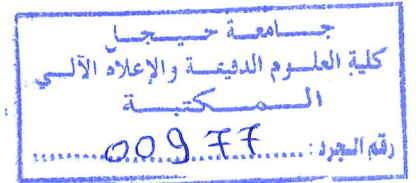 جامعة جيجل
كلية العلوم الدقيقة والإعلام الآلي
المكتبة
رقم الجرد : 00977